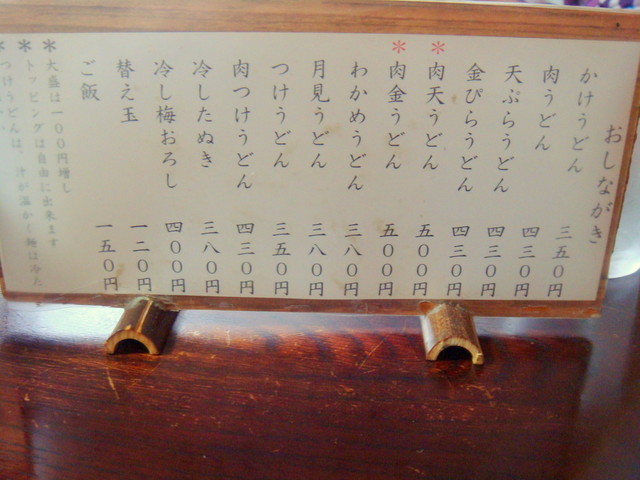 おしながき
かけうどん 三五〇円
肉うどん 四三〇円
天ぷらうどん 四三〇円
金ぴらうどん 四三〇円
*肉天うどん 五〇〇円
*肉金うどん 五〇〇円
わかめうどん 三八〇円
月見うどん 三八〇円
つけうどん 三五〇円
肉つけうどん 四三〇円
冷したぬき 三八〇円
冷し梅おろし 四〇〇円
替え玉 一二〇円
ご飯 一五〇円
*大盛は一〇〇円増し
*トッピングは自由に出来ます
*つけうどんは、汁が温かく麺は冷た